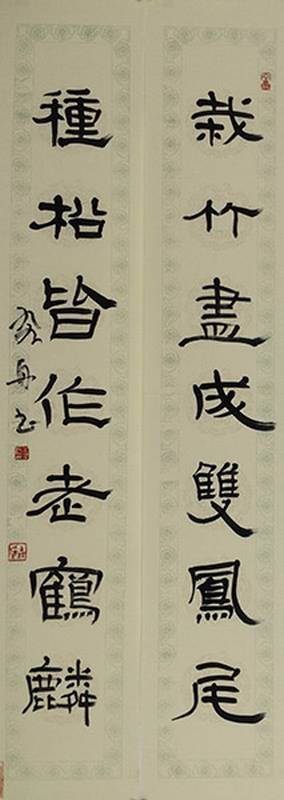 栽竹盡成雙鳳尾
種松皆作老鶴麟